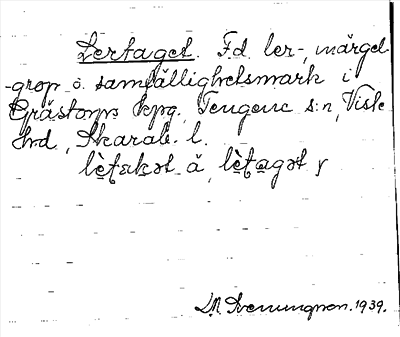 Lertaget. F.d. ler-, märgel-
-grop o. samfällighetsmark i
Grästorps kpg., Tengene s:n, Viste
hrd, Skarab. l.
lètakət ä, lètagət y
Sveningsson. 1939.